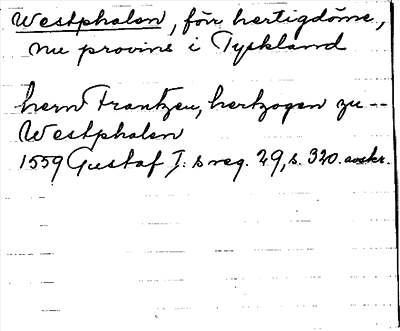 Westphalen, förr hertigdöme,
nu provins i Tyskland
hern Frantzen, hertzogen zu --
Westphalen
1559 Gustaf I:s reg. 29, s. 320. avskr.